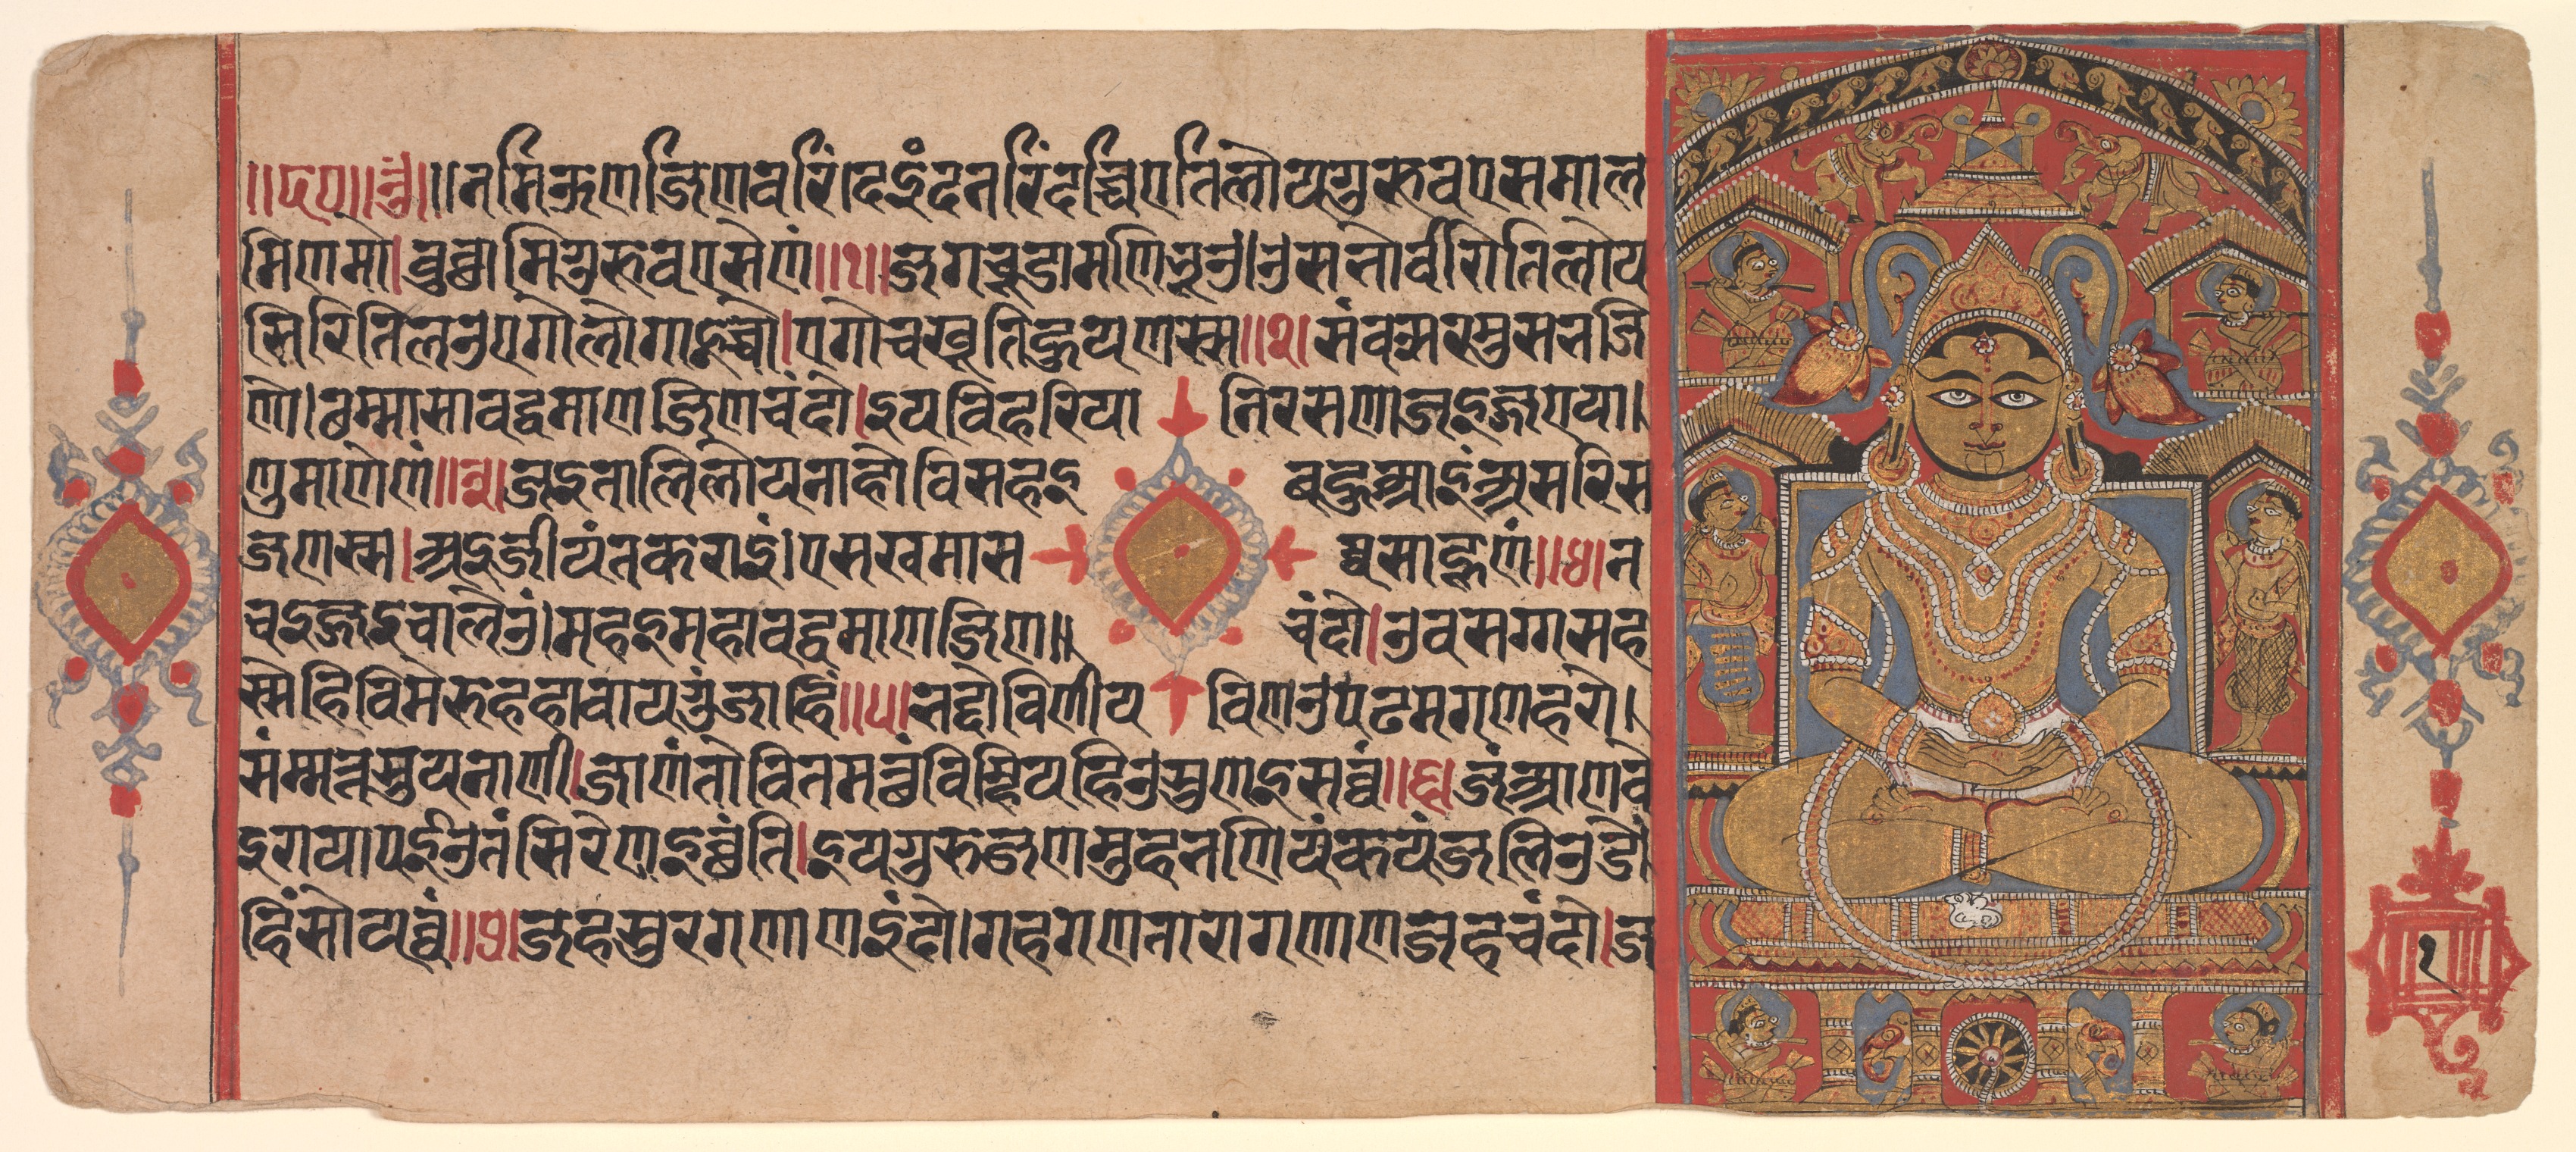 ॥ए९०॥ॐ॥॥नमिऊणजिणवरिंदेइंदनरिंदच्चिएतिलोयगुरूउवएसमाल
मिणमो।वुच्छामिगुरूवएसेणं॥१॥जगचूडामणिभूओ।उसभोवीरोतिलोय
सिरितिलओएगोलोगाइच्चो।एगोचखूतिहुयणस्स॥२॥संवछरमुसभजि
णो।छम्मासावद्धमाणजिणचंदो।इयविहरियानिरसणाजइज्जएया।
णुमाणेणं॥३॥जइतातिलोयनाहोविसहइबहुआइंअसरिस
जणस्स।अइजीयंतकराइं।एसखमासव्वसाहूणं॥४॥न
चइज्जइचालेउं।महइमहावद्धमाणजिण॥चंदो।उवसग्गसह
स्सेहिविमेरुहहावायगुंजाहिं॥५॥भद्दोविणीयविणउपढमगणहरो।
संम्मत्तसुयनाणी।जाणंतोवितमत्थंविम्हियहिउसुणइसव्वं॥६॥जंआणवे
इरायापईउतंसिरेणइच्छंति।इयगुरुजणमुहभणियंकयंजलिउडे
हिंसोयव्वं॥७॥जहसुरगणाणइंदो।गहगणतारागणाणजहचंदो।ज
१